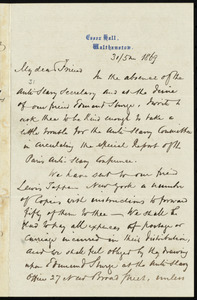 Essex Hall,
Walthamstow.
30/5m 1869
My dear Friend
In the absence of the
Anti Slavery Secretary and at the desire
of our friend Edmund Sturge, I write to
ask thee to be kind enough to take a
little trouble for the Anti Slavery Committee
in circulating the special Report of the
Paris Anti Slavery Conference.
We have sent to our friend
Lewis Tappan New York a number
of Copies with instructions to forward
fifty of them to thee — We shall be
glad to pay all expenses of postage or
carriage incurred in their distribution,
and we shall feel obliged by thy drawing
upon Edmund Sturge at the Anti Slavery
Office 27 New Broad Street, unless